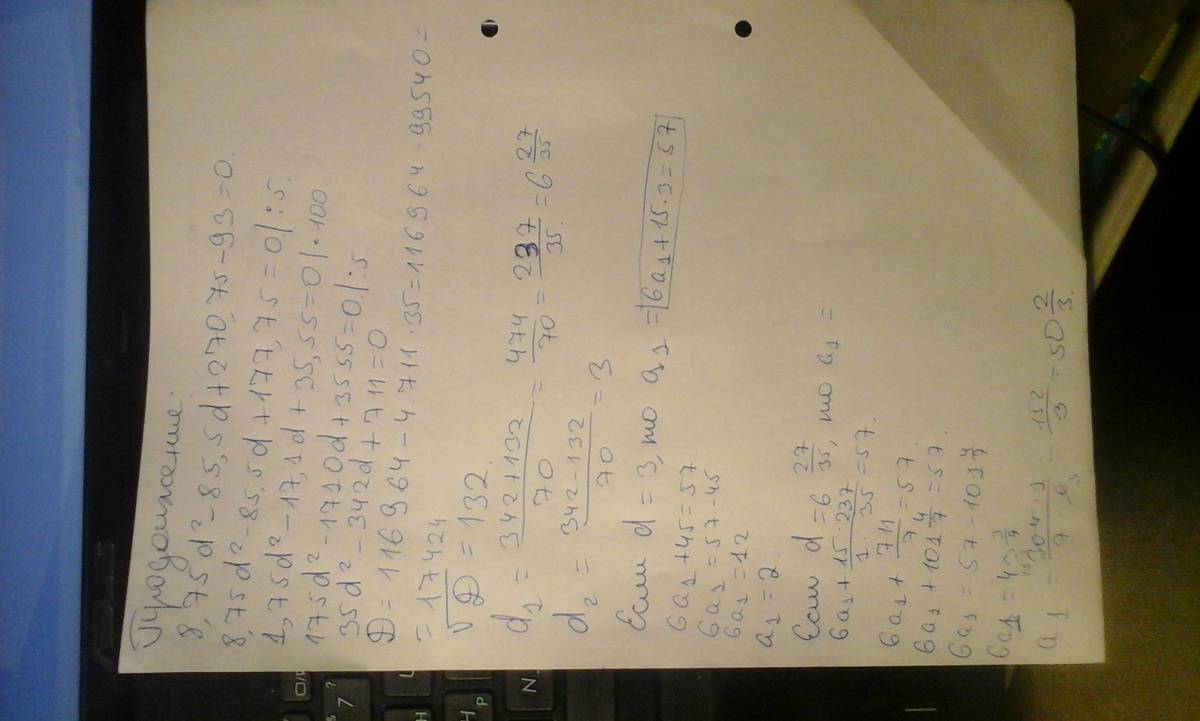 Продолжение:
8,75d²-85,5d+270,75-93=0.
8,75d²-85,5d+177,75=0/:5.
1,75d²-17,1d+35,55=0/·100.
175d²-1710d+3555=0/:5.
35d²-342d+711=0
D=116964-4·711·35=116964-99540=
=17424
√D=132.
d₁=(342+132)/70=474/70=237/35=6 27/35.
d₂=(342-132)/70=3
Если d=3, то a₁=6a₁+15·3=57
6a₁+45=57
6a₁=57-45
6a₁=12
a₁=2
Если d=6 27/35, то a₁=
6a₁+(15·237)/(1·35)=57.
6a₁+711/7=57
6a₁+101 4/7=57.
6a₁=57-101 4/7
6a₁=43 3/7
a₁=304·1/7·6=152/3=50 2/3.
7
N